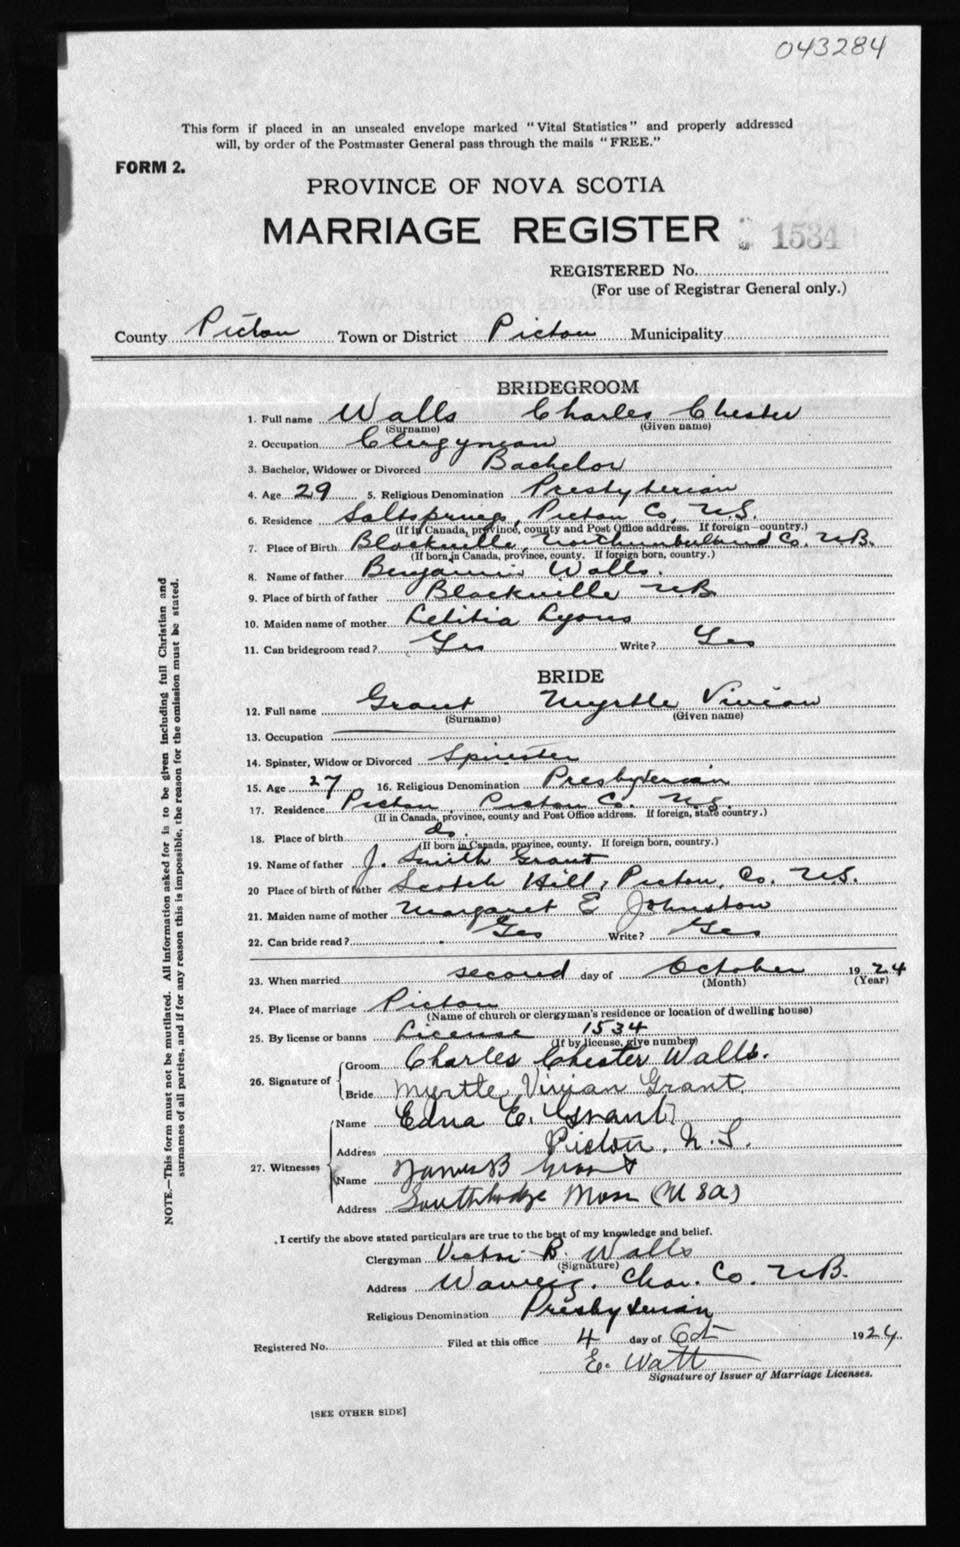 043284
This form if placed in an unsealed envelope marked "Vital Statistics" and properly addressed
will, by order of the Postmaster General pass through the mails "FREE."
FORM 2.
PROVINCE OF NOVA SCOTIA
MARRIAGE REGISTER 1534
REGISTERED No.
(For use of Registrar General only.)
County Pictou Town or District Pictou Municipality
BRIDEGROOM
1. Full name Walls Charles Chester
(Surname) (Given name)
2. Occupation Clergyman
3. Bachelor, Widower or Divorced Bachelor
4. Age 29 5. Religious Denomination Presbyterian
6. Residence Saltsprings, Pictou Co, N.S.
(If in Canada, province, county and Post Office address. If foreign—country.)
7. Place of Birth Blackville, Northumberland Co. N.B.
(If born in Canada, province, county. If foreign born, country.)
8. Name of father Benjamin Walls.
9. Place of birth of father Blackville N.B.
10. Maiden name of mother Letitia Lyons
11. Can bridegroom read? Yes Write? Yes
BRIDE
12. Full name Grant Myrtle Vivian
(Surname) (Given name)
13. Occupation
14. Spinster, Widow or Divorced Spinster
15. Age 27 16. Religious Denomination Presbyterian
17. Residence Pictou, Pictou Co. N.S.
(If in Canada, province, county and Post Office address. If foreign, state country.)
18. Place of birth do.
(If born in Canada, province, county. If foreign born, country.)
19. Name of father J. Smith Grant
20 Place of birth of father Scotch Hill, Pictou, Co. N.S.
21. Maiden name of mother Margaret E Johnston
22. Can bride read? Yes Write? Yes
23. When married second day of October 1924
(Month) (Year)
24. Place of marriage Pictou
(Name of church or clergyman's residence or location of dwelling house)
25. By license or banns License 1534
(If by license, give number)
26. Signature of Groom Charles Chester Walls.
Bride Myrtle Vivian Grant
27. Witnesses Name Edna E. Grant
Address Pictou, N.S.
Name James B Grant
Address Southbridge Mass (U S a)
I certify the above stated particulars are true to the best of my knowledge and belief.
Clergyman Victor B. Walls
(Signature)
Address Waweig. Char. Co. N.B.
Religious Denomination Presbyterian
Registered No. Filed at this office 4 day of Oct 1924.
E. Watt
Signature of Issuer of Marriage Licenses.
[SEE OTHER SIDE]
NOTE.—This form must not be mutilated. All information asked for is to be given including full Christian and
surnames of all parties, and if for any reason this is impossible, the reason for the omission must be stated.